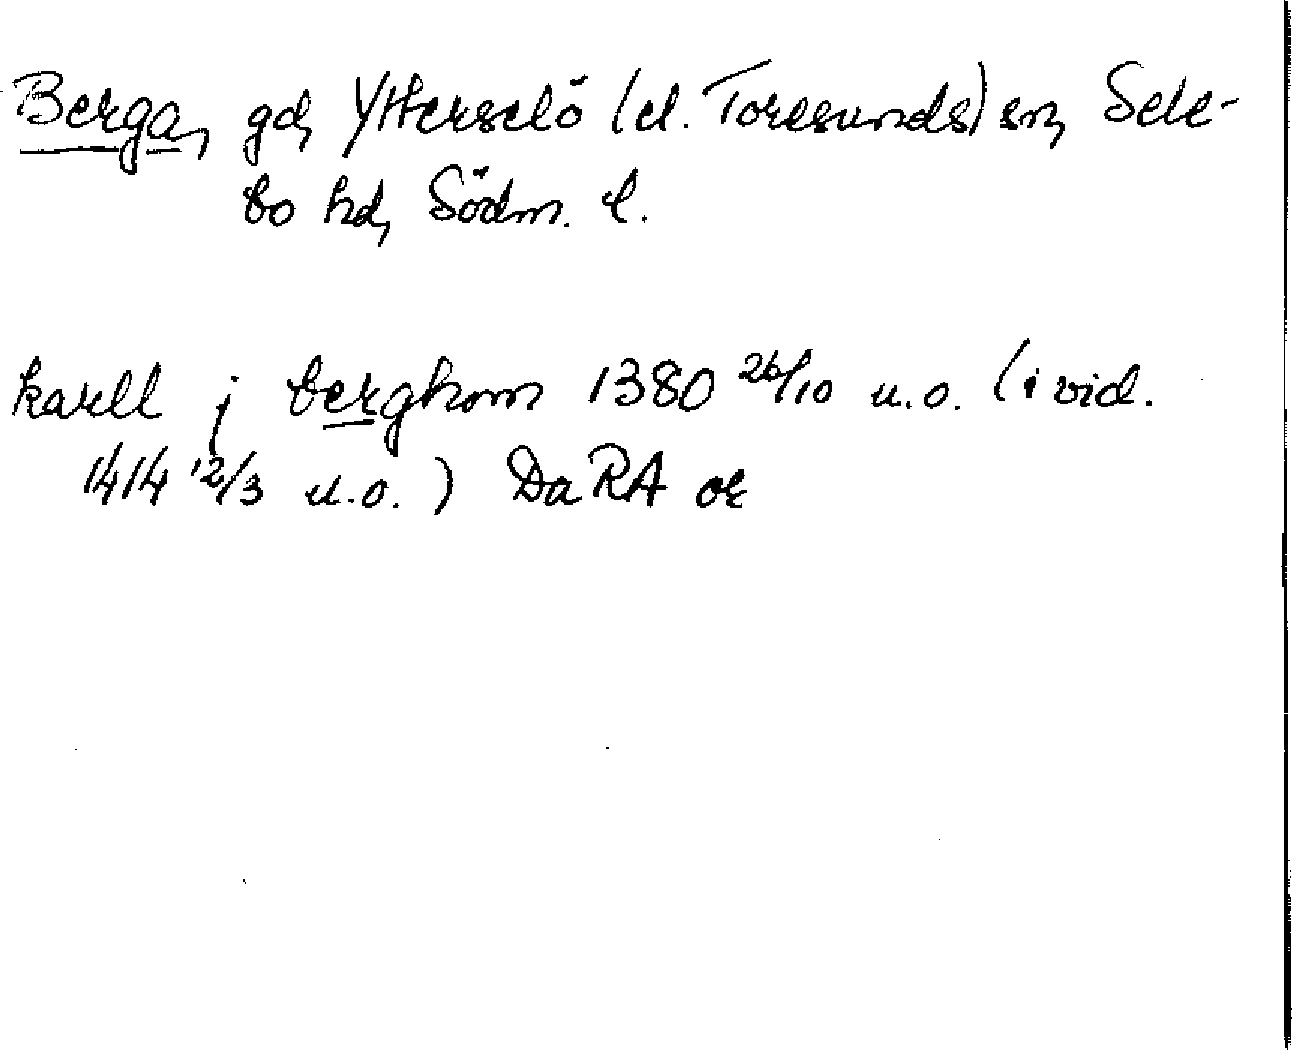 Berga, gd, Ytterselö (el. Toresunds) sn, Sele-
bo hd, Södm. l.
karll j berghom 1380 26/10 u.o. (i vid.
1414 12/3 u.o.) DaRA or